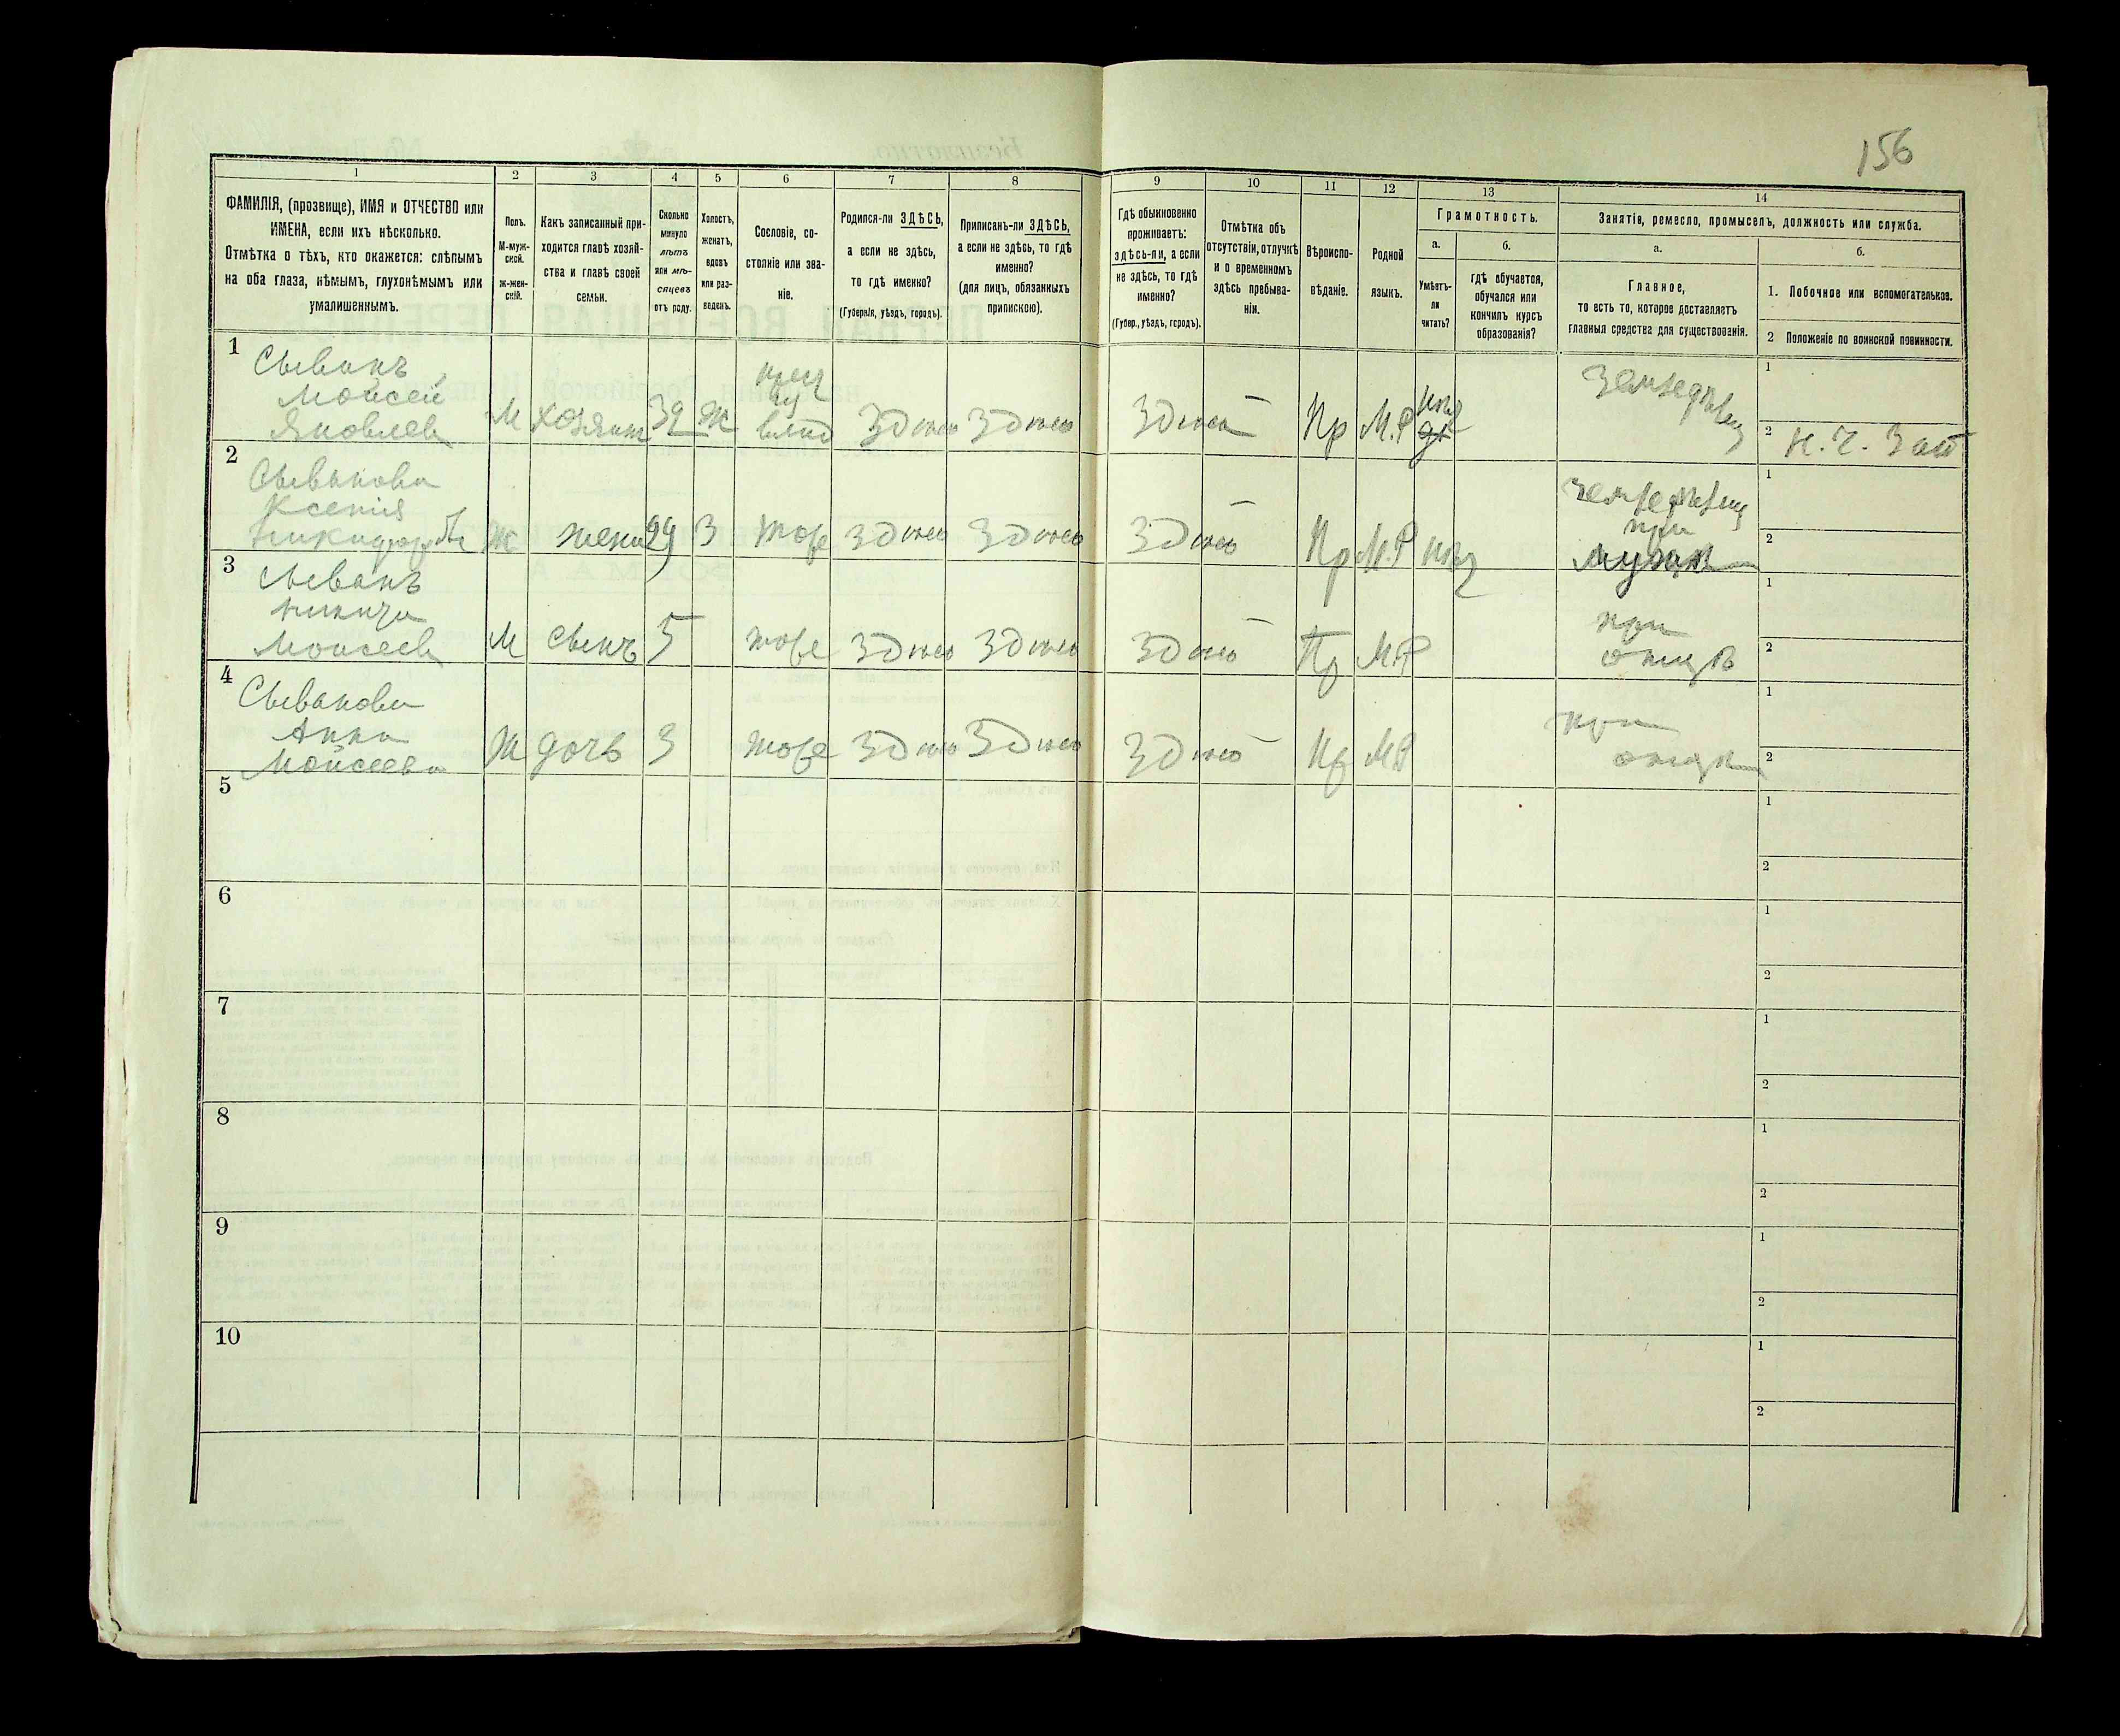 156
1 2 3 4 5 6 7 8 9 10 11 12 13 14
ФАМИЛІЯ, (прозвище), ИМЯ и ОТЧЕСТВО или
ИМЕНА, если ихъ нѣсколько.
Отмѣтка о тѣхъ, кто окажется: слѣпымъ
на оба глаза, нѣмымъ, глухонѣмымъ или
умалишеннымъ.
Полъ.
М-муж-
ской.
Ж-жен-
скій.
Какъ записанный при-
ходится главѣ хозяй-
ства и главѣ своей
семьи.
Сколько
минуло
лѣтъ
или мѣ-
сяцевъ
отъ роду.
Холостъ,
женатъ,
вдовъ
или раз-
веденъ.
Сословіе, со-
стояніе или зва-
ніе.
Родился-ли ЗДѢСЬ,
а если не здѣсь,
то гдѣ именно?
(Губернія, уѣздъ, городъ).
Приписанъ-ли ЗДѢСЬ,
а если не здѣсь, то гдѣ
именно?
(для лицъ, обязанныхъ
припискою).
Гдѣ обыкновенно
проживаетъ:
здѣсь-ли, а если
не здѣсь, то гдѣ
именно?
(Губер., уѣздъ, городъ).
Отмѣтка объ
отсутствіи, отлучкѣ
и о временномъ
здѣсь пребыва-
ніи.
Вѣроиспо-
вѣданіе.
Родной
языкъ.
Грамотность.
а.
Умѣетъ-
ли
читать?
б.
гдѣ обучается,
обучался или
кончилъ курсъ
образованія?
Занятіе, ремесло, промыселъ, должность или служба.
а.
Главное,
то есть то, которое доставляетъ
главныя средства для существованія.
б.
1. Побочное или вспомогательное.
2 Положеніе по воинской повинности.
1
Сывакъ
Моисей
Яковлев
М
39
Ж
Здись
Здись
Здись
Пр
М.Р
1
2
2
Сывакова
Ксения
Ж
жена
29
З
тоже
Здись
Здись
Здись
Пр
М.Р
при
мужѣ
1
2
3
Сывакъ
Никита
Моисеев
М
сынъ
5
тоже
Здись
Здись
Здись
Пр
МР
при
отцѣ
1
2
4
Сывакова
Анна
Моисеева
Ж
дочь
3
тоже
Здись
Здись
Здись
Пр
МР
при
отцѣ
1
2
5
1
2
6
1
2
7
1
2
8
1
2
9
1
2
10
1
2